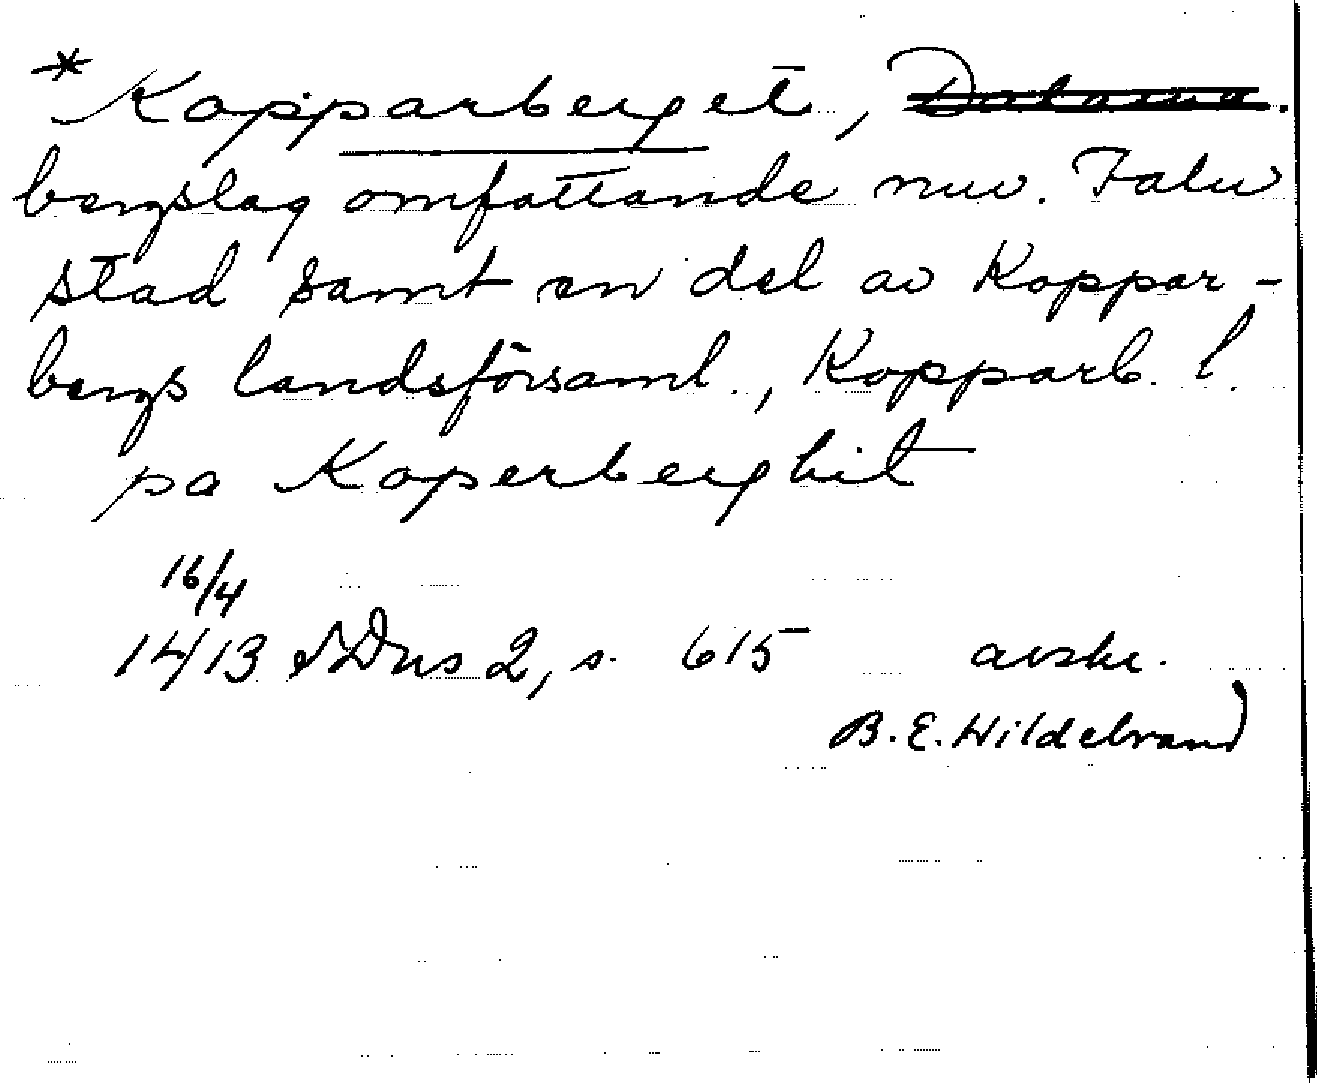 * Kopparberget, Dalarna.
bergslag omfattande nuv. Falu
stad samt en del av Koppar-
bergs landsförsaml., Kopparb. l.
pa Koperberghit
16/4
1413 SDns 2, s. 615 avskr.
B.E. Hildebrand